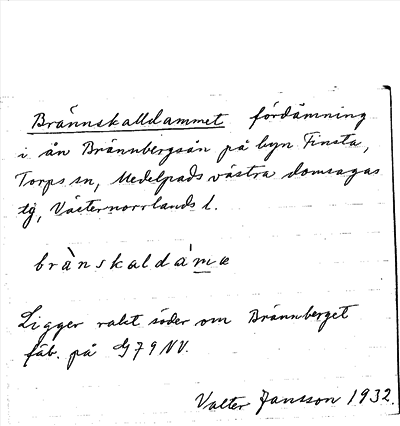 Brännskalldammet fördämning
i ån Brännbergsån på byn Finsta,
Torps sn, Medelpads västra domsagas
tg, Västernorrlands l.
brànskaldámɐ
Ligger rakt söder om Brännberget
fäb. på G79NV.
Valter Jansson 1932.